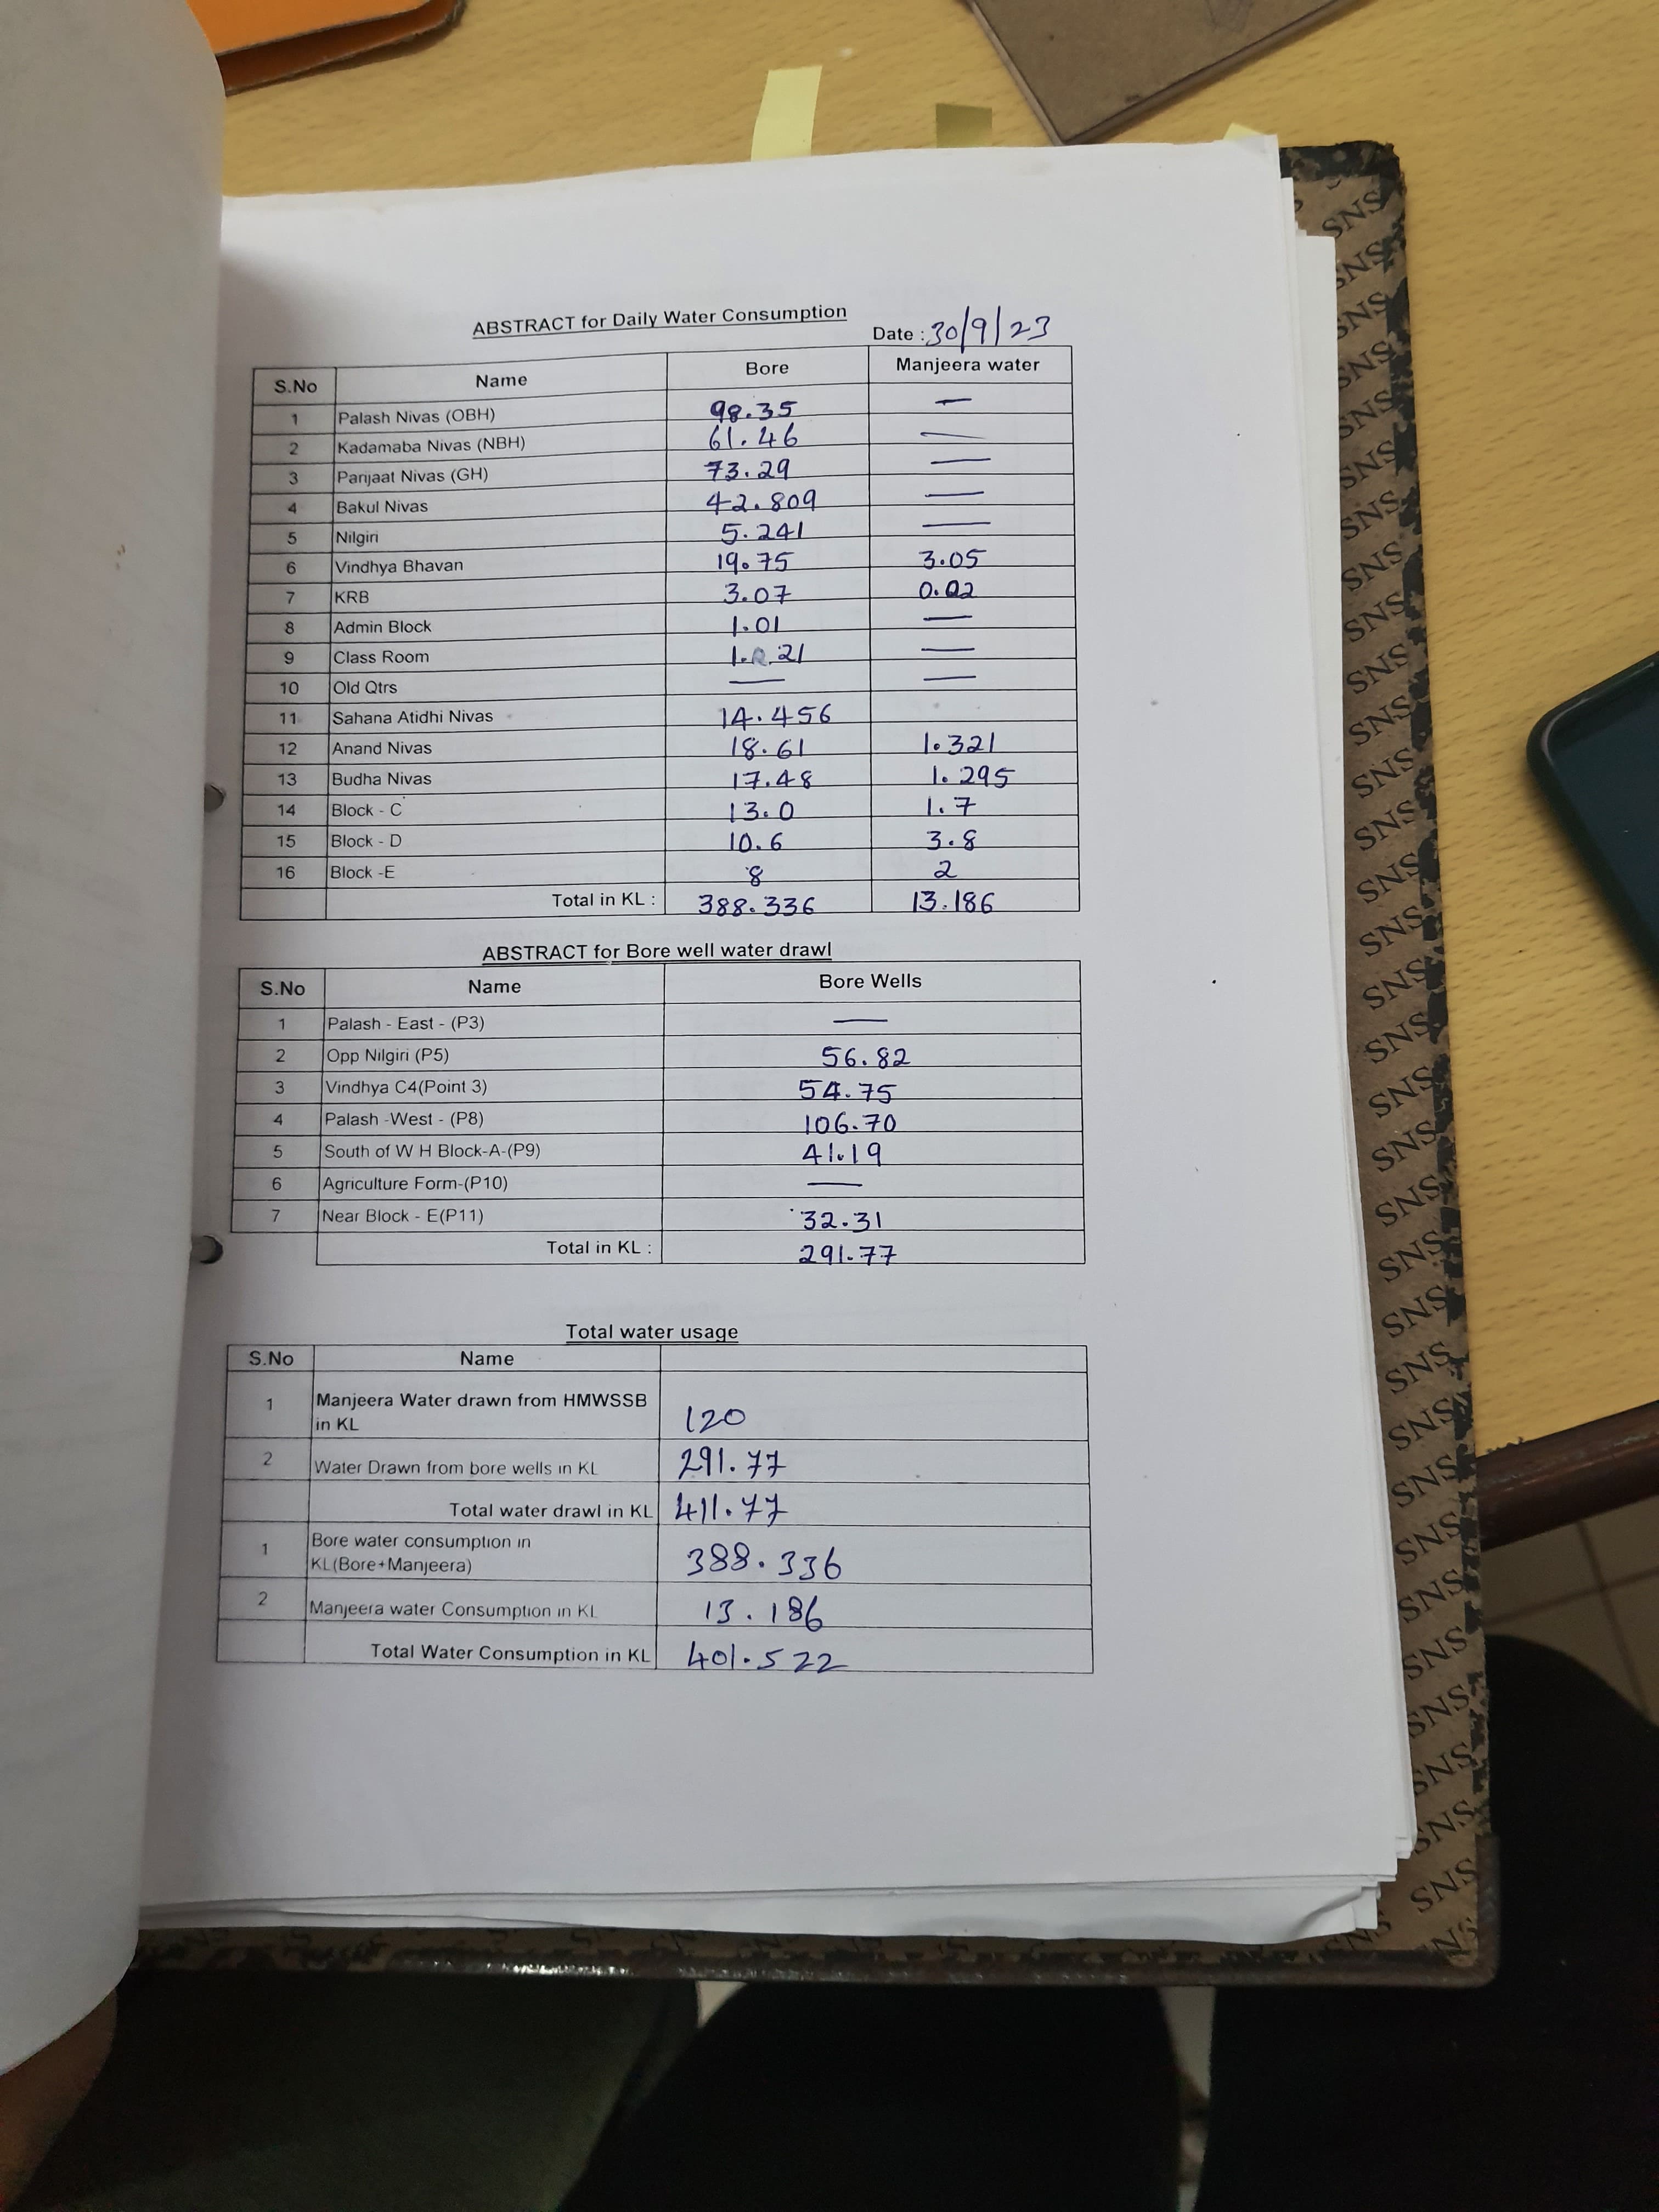 ABSTRACT for Daily Water Consumption
Date : 30/9/23
S.No Name Bore Manjeera water
1 Palash Nivas (OBH) 98.35 —
2 Kadamaba Nivas (NBH) 61.46 —
3 Parijaat Nivas (GH) 73.29 —
4 Bakul Nivas 42.809 —
5 Nilgiri 5.241 —
6 Vindhya Bhavan 19.75 3.05
7 KRB 3.07 0.02
8 Admin Block 1.01 —
9 Class Room 1.21 —
10 Old Qtrs — —
11 Sahana Atidhi Nivas 14.456
12 Anand Nivas 18.61 1.321
13 Budha Nivas 17.48 1.295
14 Block - C 13.0 1.7
15 Block - D 10.6 3.8
16 Block -E 8 2
Total in KL : 388.336 13.186
ABSTRACT for Bore well water drawl
S.No Name Bore Wells
1 Palash - East - (P3) —
2 Opp Nilgiri (P5) 56.82
3 Vindhya C4(Point 3) 54.75
4 Palash -West - (P8) 106.70
5 South of W H Block-A-(P9) 41.19
6 Agriculture Form-(P10) —
7 Near Block - E(P11) 32.31
Total in KL : 291.77
Total water usage
S.No Name
1 Manjeera Water drawn from HMWSSB
in KL 120
2 Water Drawn from bore wells in KL 291.77
Total water drawl in KL 411.77
1 Bore water consumption in
KL(Bore+Manjeera) 388.336
2 Manjeera water Consumption in KL 13.186
Total Water Consumption in KL 401.522
SNS